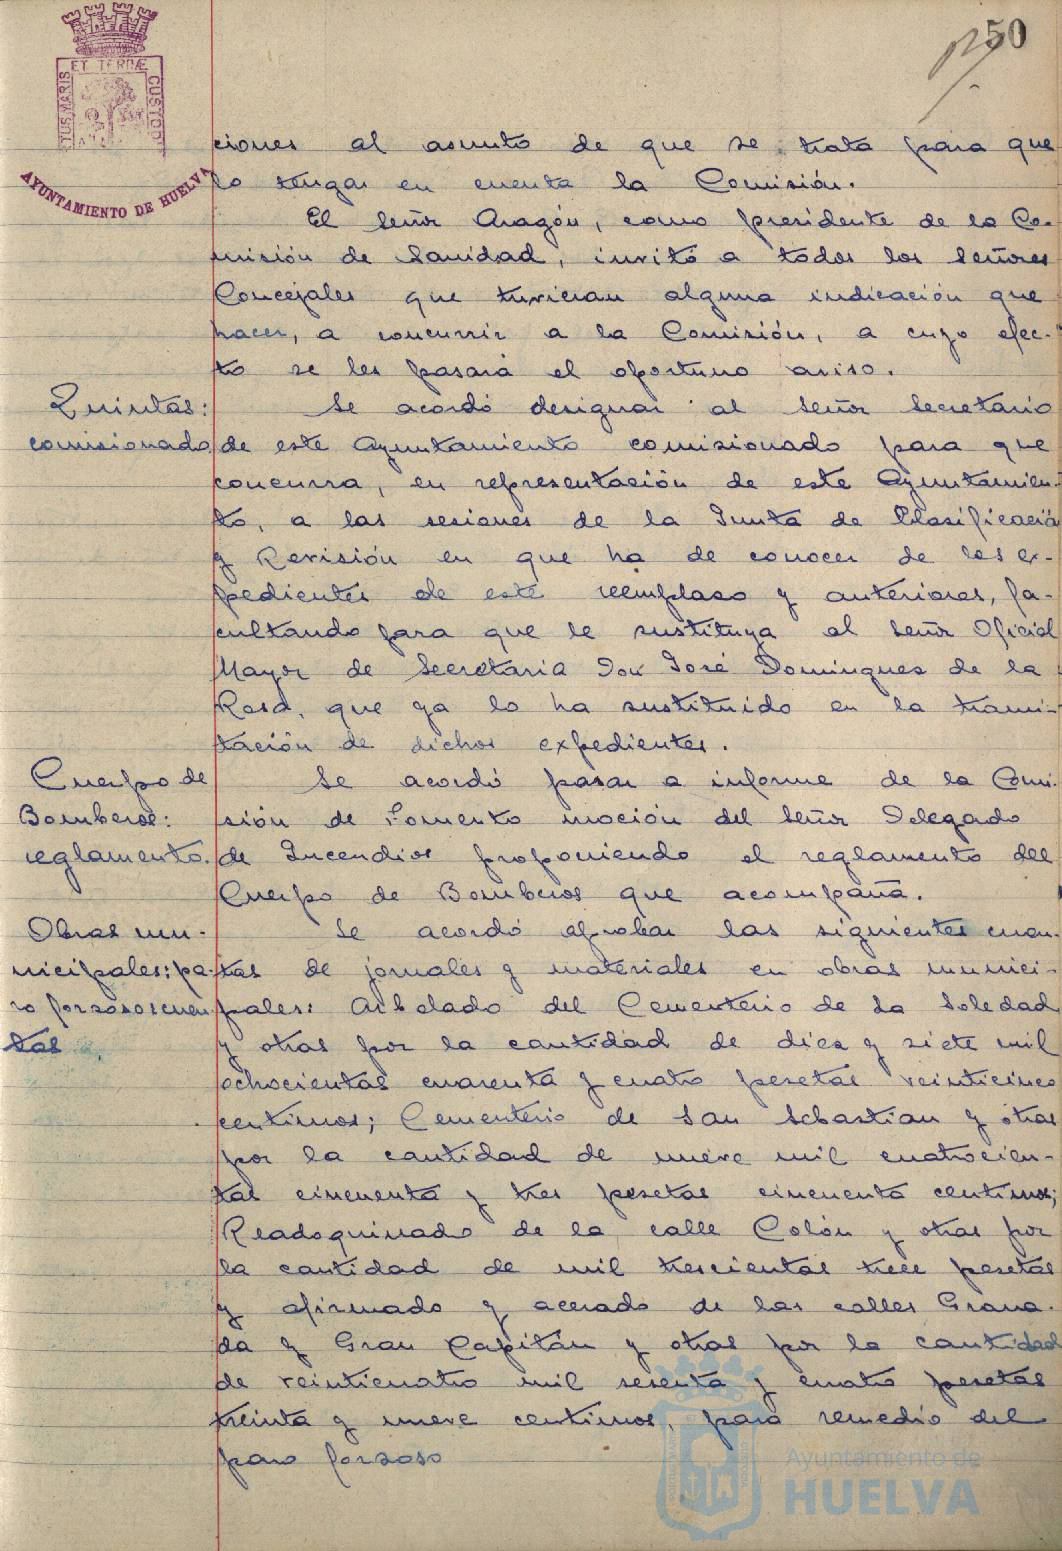 50
PORTUS MARIS ET TERRÆ CUSTODIA
AYUNTAMIENTO DE HUELVA
ciones al asunto de que se trata para que
lo tengan en cuenta la Comisión.
El Señor Aragón, como presidente de la Co-
misión de Sanidad, invitó a todos los Señores
Concejales que tuvieran alguna indicación que
hacer, a concurrir a la Comisión, a cuyo efec-
to se les pasará el oportuno aviso.
Quintas:
comisionado
Se acordó designar al Señor Secretario
de este Ayuntamiento comisionado para que
concurra, en representación de este Ayuntamien-
to, a las sesiones de la Junta de Clasificación
y Revisión en que ha de conocer de los ex-
pedientes de este reemplaso y anteriores, fa-
cultando para que le sustituya al Señor Oficial
Mayor de Secretaria Don José Domingues de la
Rosa, que ya lo ha sustituido en la trami-
tación de dichos expedientes.
Cuerpo de
Bomberos:
reglamento.
Se acordó pasar a informe de la Comi-
sión de Fomento moción del Señor Delegado
de Incendios proponiendo el reglamento del
Cuerpo de Bomberos que acompaña.
Obras mu-
nicipales: pa-
ro forsoso: cuen
tas
Se acordó aprobar las siguientes cuen-
tas de jornales y materiales en obras munici-
pales: Arbolado del Cementerio de la Soledad
y otras por la cantidad de dies y siete mil
ochocientas cuarenta y cuatro pesetas veinticinco
centimos; Cementerio de San Sebastian y otras
por la cantidad de nueve mil cuatrocien-
tas cincuenta y tres pesetas cincuenta centimos;
Readoquinado de la calle Colón y otras por
la cantidad de mil trescientas trece pesetas
y afirmado y acerado de las calles Grana-
da y Gran Capitán y otras por la cantidad
de veinticuatro mil sesenta y cuatro pesetas
treinta y nueve centimos, para remedio del
paro forsoso
Ayuntamiento de
HUELVA